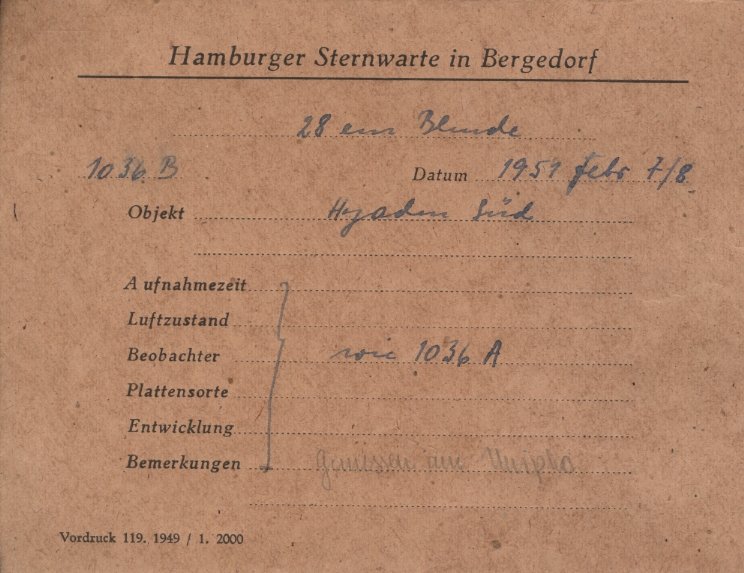 Hamburger Sternwarte in Bergedorf
28 cm Blende
1036 B Datum 1951 Febr 7/8
Objekt Hyaden Süd
Aufnahmezeit
Luftzustand
Beobachter wie 1036 A
Plattensorte
Entwicklung
Bemerkungen
Vordruck 119. 1949 / 1. 2000